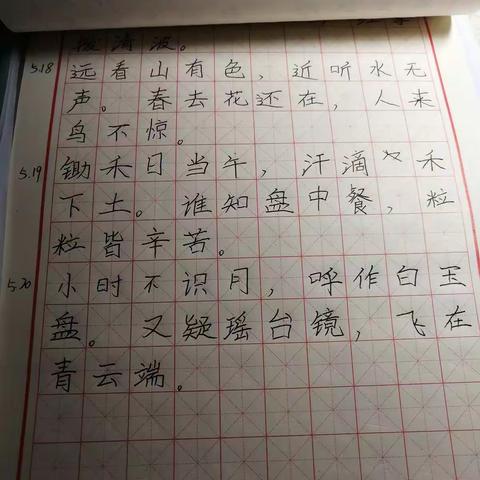 拨清波。
5.18 远看山有色，近听水无
声。春去花还在，人来
鸟不惊。
5.19 锄禾日当午，汗滴禾
下土。谁知盘中餐，粒
粒皆辛苦。
5.20 小时不识月，呼作白玉
盘。又疑瑶台镜，飞在
青云端。